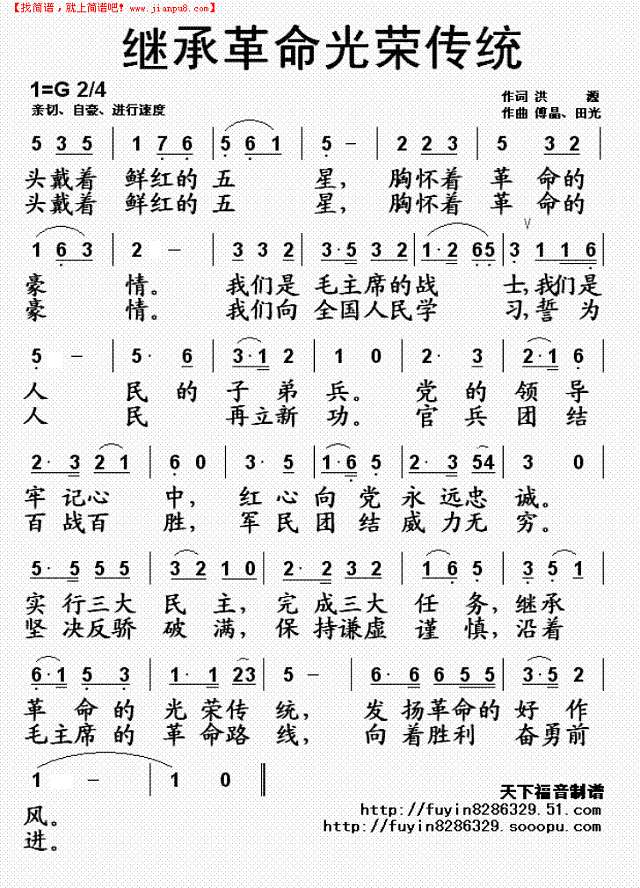 【找简谱，就上简谱吧! www.jianpu8.com】
继承革命光荣传统
1=G 2/4
亲切、自豪、进行速度
作词 洪 源
作曲 傅晶、田光
5 3 5 | 1 7 6 | 5 6 1 | 5 – | 2 2 3 | 5 3 2 |
头戴着 鲜红的 五 星, 胸怀着 革 命的
头戴着 鲜红的 五 星, 胸怀着 革 命的
1 6 3 | 2 – | 3 3 2 | 3·5 3 2 | 1·2 65 | 3 1 1 6 |
豪 情。 我们是 毛主席的战 士,我们是
豪 情。 我们向 全国人民学 习,誓为
5 – | 5· 6 | 3·1 2 | 1 0 | 2· 3 | 2·1 6 |
人 民 的 子 弟 兵。 党 的 领 导
人 民 再立新 功。 官 兵 团 结
2·3 2 1 | 6 0 | 3· 5 | 1·6 5 | 2·3 54 | 3 0 |
牢 记心 中, 红 心向 党 永 远忠 诚。
百 战百 胜, 军 民团 结 威 力无 穷。
5·5 5 5 | 3 2 1 0 | 2·2 3 2 | 1 6 5 | 3 5 1 |
实 行三大 民 主, 完 成三大 任 务,继承
坚 决反骄 破 满, 保 持谦虚 谨 慎,沿着
6·1 5 3 | 1·1 23 | 5 – | 6·6 6 5 5 | 3·5 2 |
革 命 的 光 荣传 统, 发 扬革命的 好 作
毛主席 的 革 命路 线, 向 着胜利 奋勇前
1 – | 1 0 ‖
风。
进。
天下福音制谱
http://fuyin8286329.51.com
http://fuyin8286329.sooopu.com